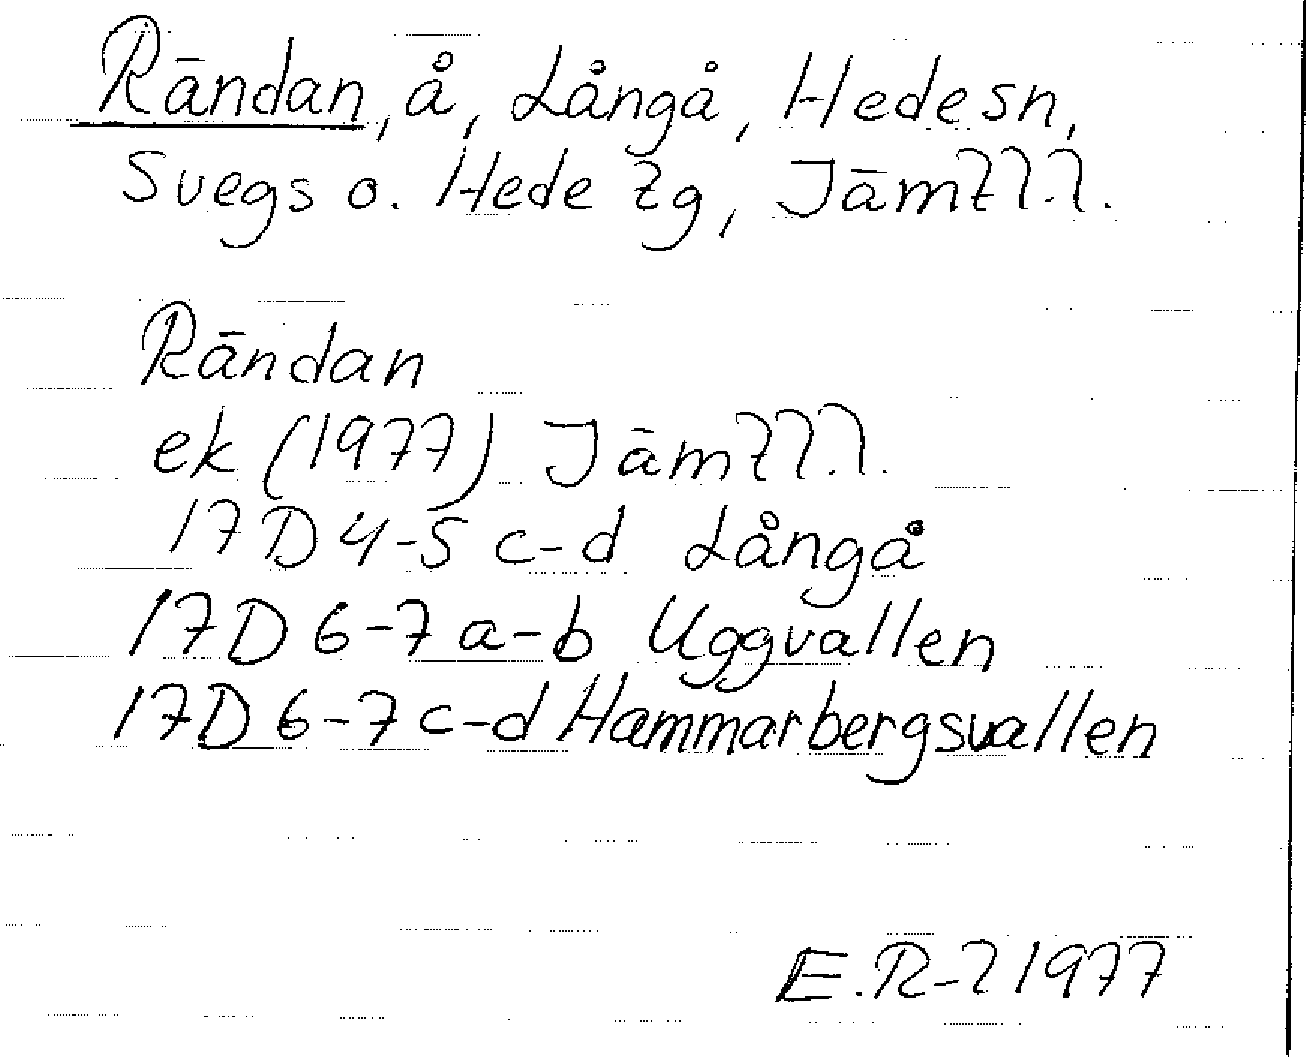 Rändan, å, Långå, Hede sn,
Svegs o. Hede tg,
Rändan
ek (1977)
17D 4-5 c-d Långå
17D 6-7 a-b Uggvallen
17D 6-7 c-d Hammarbergsvallen
1977